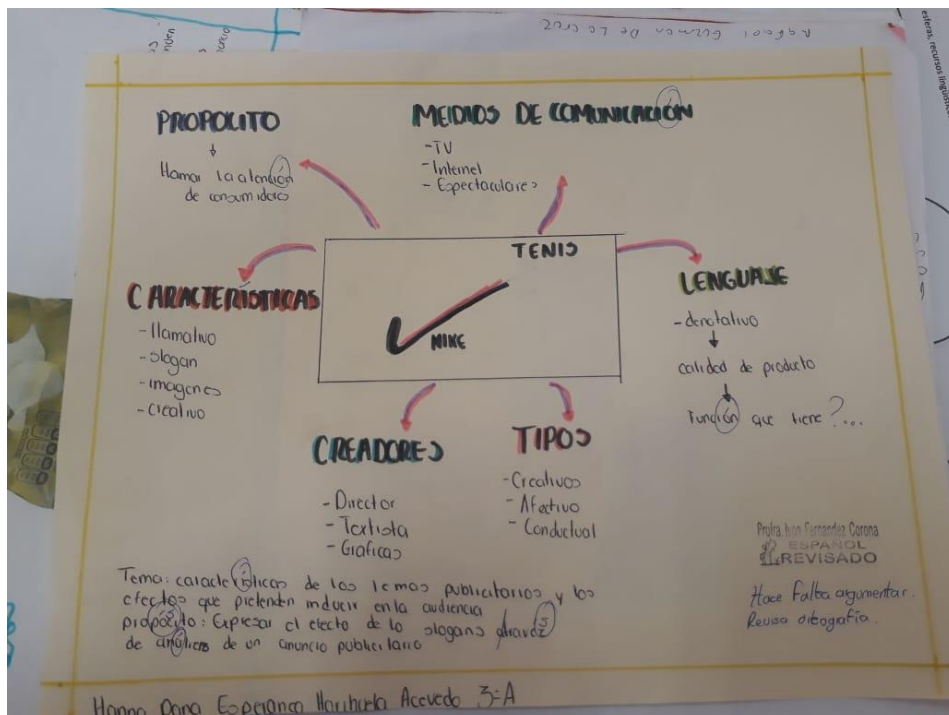 Rafael Guzman De La Cruz
esferas, recursos lingüíst
PROPOLITO
llamar la atención
de consumidores
MEIDIOS DE COMUNICACIÓN
-TV
-Internet
-Espectaculares
TENIS
NIKE
CARACTERÍSTICAS
-llamativo
-slogan
-imagenes
-creativo
LENGUAJE
-denotativo
calidad de producto
Función que tiene?...
CREADORES
-Director
-Textista
-Graficas
TIPOS
-Creativos
-Afectivo
-Conductual
Profra. Ivon Fernandez Corona
ESPAÑOL
REVISADO
Hace falta argumentar.
Revisa ortografía.
Tema: características de los lemas publicitarios y los
efectos que pretenden inducir en la audiencia
propósito: Expresar el efecto de lo slogans atravéz
de análisis de un anuncio publicitario
Hanna Dana Esperanca Acevedo 3=A